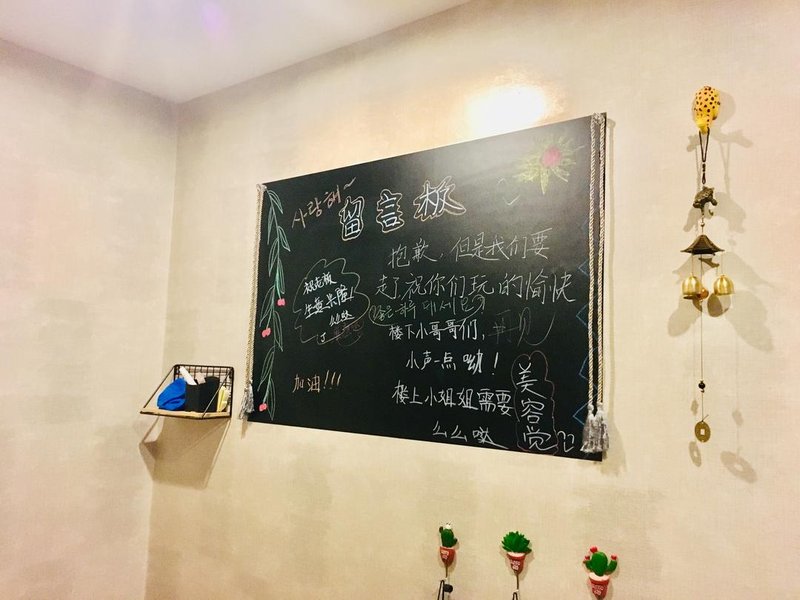 사랑해~
留言板
抱歉，但是我们要
走了祝你们玩的愉快
再见
祝老板
生意兴隆！
么么哒
楼下小哥哥们，
小声一点呦！
加油！！！
楼上小姐姐需要
美容觉
么么哒